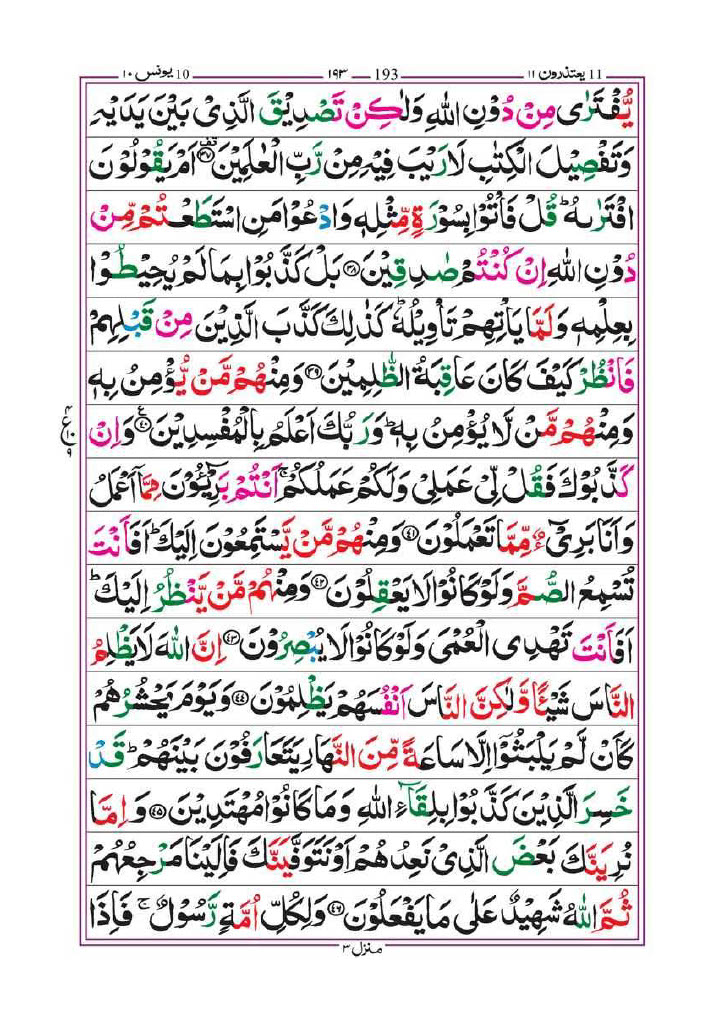 يعتذرون ١١ 11 — 193 — ١٩٣ — يونس ١٠ 10
يُّفْتَرٰى مِنْ دُوْنِ اللّٰهِ وَلٰكِنْ تَصْدِيْقَ الَّذِىْ بَيْنَ يَدَيْهِ
وَتَفْصِيْلَ الْكِتٰبِ لَا رَيْبَ فِيْهِ مِنْ رَّبِّ الْعٰلَمِيْنَ ﴿٣٧﴾ اَمْ يَقُوْلُوْنَ
افْتَرٰىهُ ؕ قُلْ فَاْتُوْا بِسُوْرَةٍ مِّثْلِهٖ وَادْعُوْا مَنِ اسْتَطَعْتُمْ مِّنْ
دُوْنِ اللّٰهِ اِنْ كُنْتُمْ صٰدِقِيْنَ ﴿٣٨﴾ بَلْ كَذَّبُوْا بِمَا لَمْ يُحِيْطُوْا
بِعِلْمِهٖ وَلَمَّا يَاْتِهِمْ تَاْوِيْلُهٗ ؕ كَذٰلِكَ كَذَّبَ الَّذِيْنَ مِنْ قَبْلِهِمْ
فَانْظُرْ كَيْفَ كَانَ عَاقِبَةُ الظّٰلِمِيْنَ ﴿٣٩﴾ وَمِنْهُمْ مَّنْ يُّؤْمِنُ بِهٖ
وَمِنْهُمْ مَّنْ لَّا يُؤْمِنُ بِهٖ ؕ وَرَبُّكَ اَعْلَمُ بِالْمُفْسِدِيْنَ ﴿٤٠﴾ وَاِنْ
كَذَّبُوْكَ فَقُلْ لِّىْ عَمَلِىْ وَلَكُمْ عَمَلُكُمْ ۚ اَنْتُمْ بَرِيْٓئُوْنَ مِمَّاۤ اَعْمَلُ
وَاَنَا بَرِىْٓءٌ مِّمَّا تَعْمَلُوْنَ ﴿٤١﴾ وَمِنْهُمْ مَّنْ يَّسْتَمِعُوْنَ اِلَيْكَ ؕ اَفَاَنْتَ
تُسْمِعُ الصُّمَّ وَلَوْ كَانُوْا لَا يَعْقِلُوْنَ ﴿٤٢﴾ وَمِنْهُمْ مَّنْ يَّنْظُرُ اِلَيْكَ ؕ
اَفَاَنْتَ تَهْدِى الْعُمْىَ وَلَوْ كَانُوْا لَا يُبْصِرُوْنَ ﴿٤٣﴾ اِنَّ اللّٰهَ لَا يَظْلِمُ
النَّاسَ شَيْئًا وَّلٰكِنَّ النَّاسَ اَنْفُسَهُمْ يَظْلِمُوْنَ ﴿٤٤﴾ وَيَوْمَ يَحْشُرُهُمْ
كَاَنْ لَّمْ يَلْبَثُوْۤا اِلَّا سَاعَةً مِّنَ النَّهَارِ يَتَعَارَفُوْنَ بَيْنَهُمْ ؕ قَدْ
خَسِرَ الَّذِيْنَ كَذَّبُوْا بِلِقَآءِ اللّٰهِ وَمَا كَانُوْا مُهْتَدِيْنَ ﴿٤٥﴾ وَاِمَّا
نُرِيَنَّكَ بَعْضَ الَّذِىْ نَعِدُهُمْ اَوْ نَتَوَفَّيَنَّكَ فَاِلَيْنَا مَرْجِعُهُمْ
ثُمَّ اللّٰهُ شَهِيْدٌ عَلٰى مَا يَفْعَلُوْنَ ﴿٤٦﴾ وَلِكُلِّ اُمَّةٍ رَّسُوْلٌ ۚ فَاِذَا
ع ٤ ١٠ ٩
منزل ٣